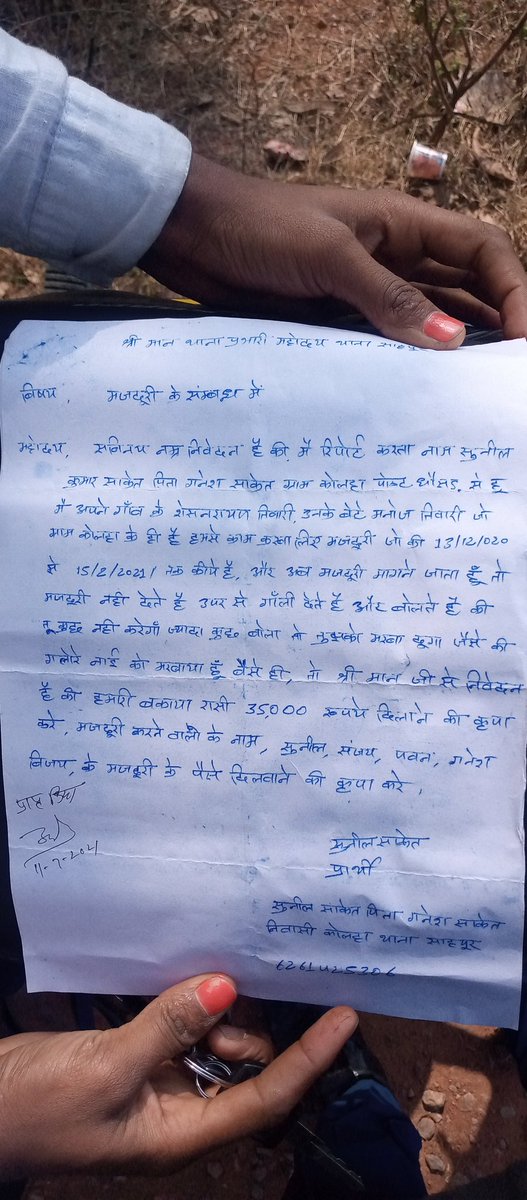 श्री मान थाना प्रभारी महोदय थाना साहपुर
विषय, मजदूरी के संम्बध में
महोदय, सविनय नम्र निवेदन है की मै रिपोर्ट करता नाम सुनील
कुमार साकेत पिता गनेश साकेत ग्राम कोलहा पोस्ट से हू
मै अपने गाँव के शेसनरायण तिवारी, उनके बेटे मनोज तिवारी जो
ग्राम कोलहा के ही है हमसे काम करवा लिए मजदूरी जो की 13/12/020
से 15/2/2021/ तक कीये है, और अब मजदूरी मागने जाता हूँ तो
मजदूरी नही देते है उपर से गाँली देते है और बोलते है की
तू कुछ नही करेगाँ ज्यादा कुछ बोला तो तुझको मरवा दूगा जैसे की
गलोरे नाई को मरवाया हूँ वैसे ही, तो श्री मान जी से निवेदन
है की हमारी वकाया रासी 35,000 रूपये दिलाने की कृपा
करे, मजदूरी करने वालो के नाम, सुनील, संजय, पवन, गनेश
विजय, के मजदूरी के पैसे दिलवाने की कृपा करे,
प्राप्त किया
11-7-2021
सुनील साकेत
प्रार्थी
सुनील साकेत पिता गनेश साकेत
निवासी कोलहा थाना साहपुर
6261425306